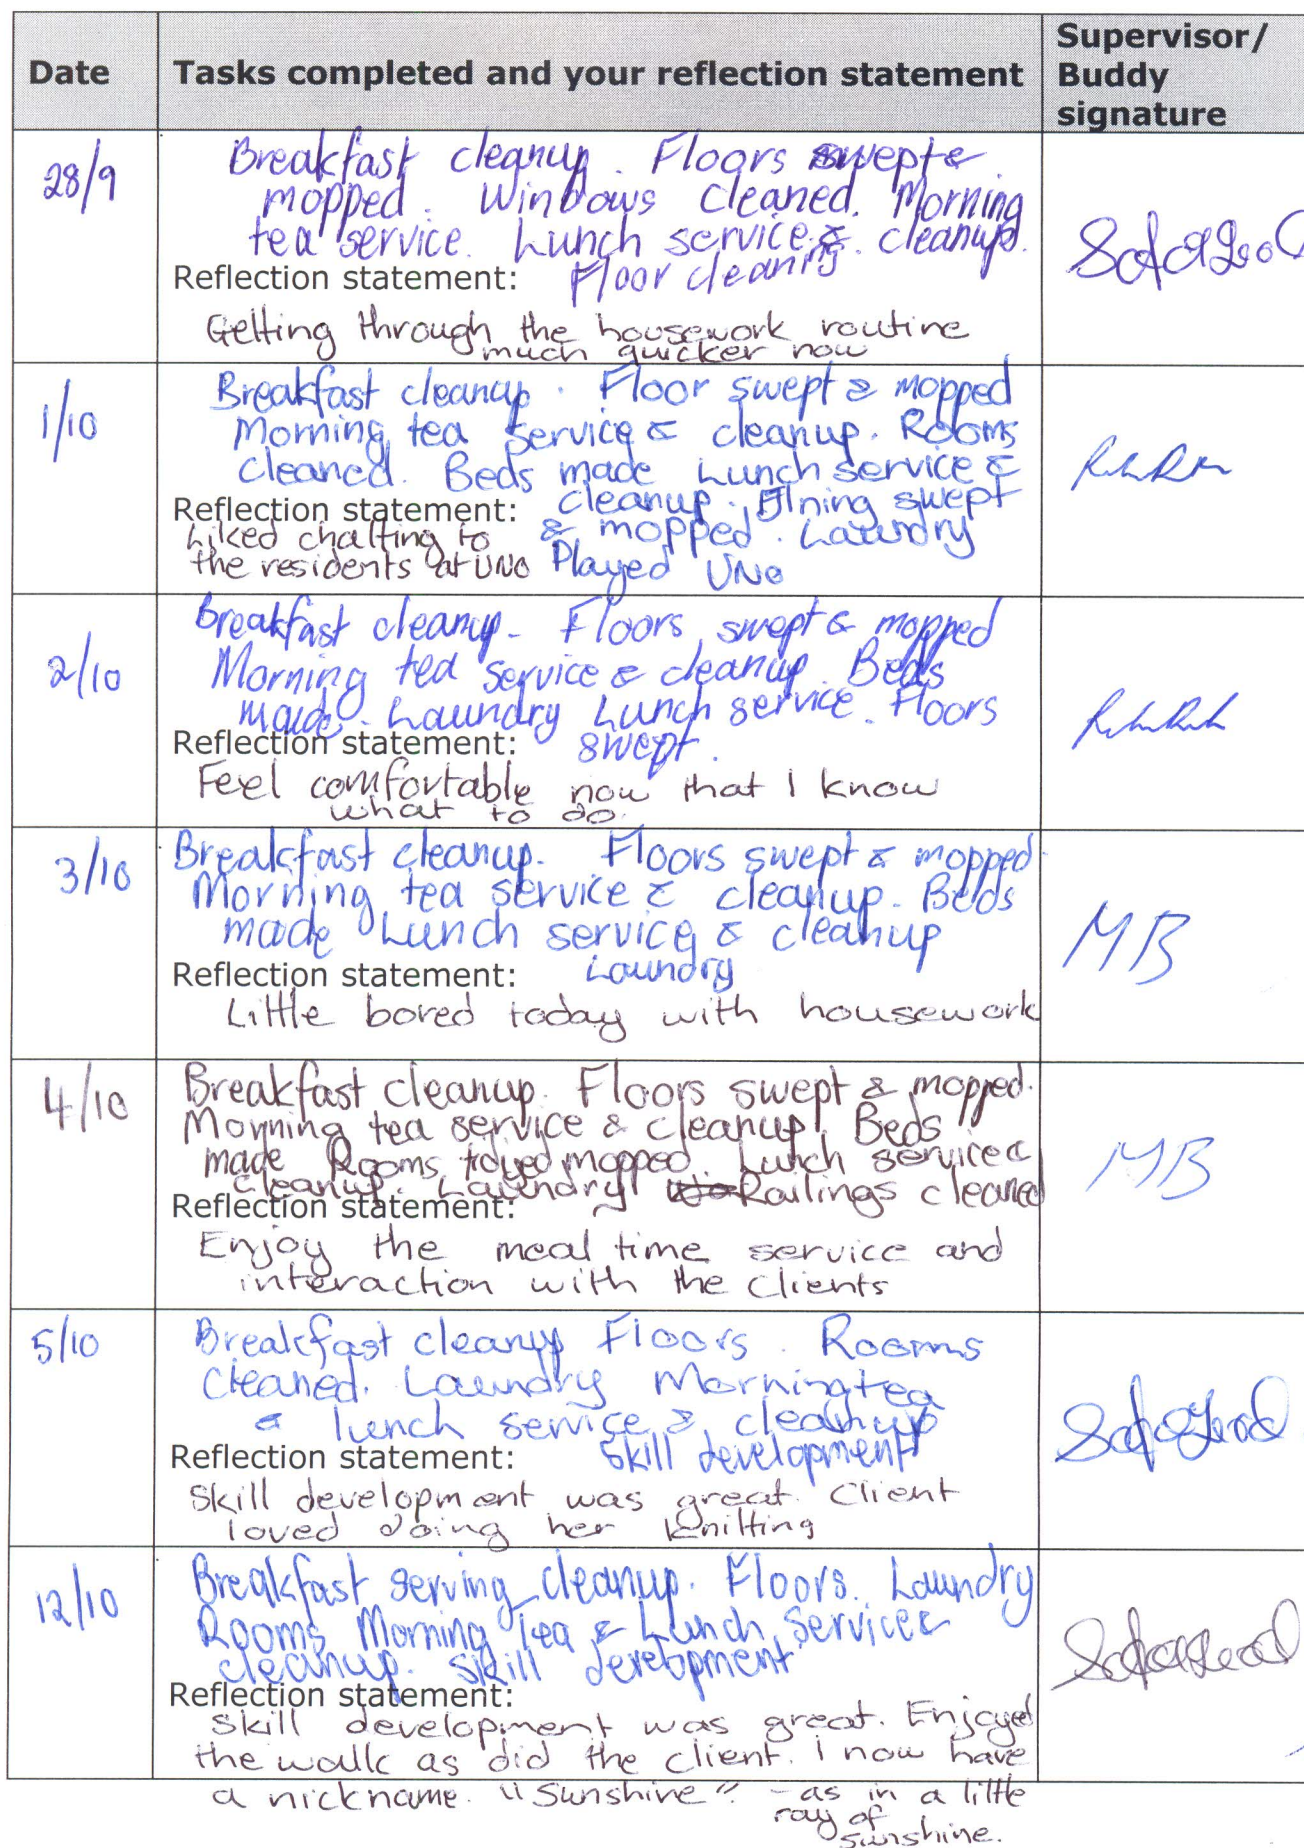 Date
Tasks completed and your reflection statement
Supervisor/
Buddy
signature
28/9
Breakfast cleanup. Floors swept &
mopped. Windows cleaned. Morning
tea service. Lunch service & cleanup.
Floor cleaning
Reflection statement:
Getting through the housework routine
much quicker now
1/10
Breakfast cleanup. Floor swept & mopped
Morning tea service & cleanup. Rooms
cleaned. Beds made Lunch service &
cleanup. Dining swept
& mopped. Laundry
Played UNO
Reflection statement:
Liked chatting to
the residents at UNO
2/10
Breakfast cleanup - Floors swept & mopped
Morning tea service & cleanup Beds
made. Laundry Lunch service. Floors
swept.
Reflection statement:
Feel comfortable now that I know
what to do.
3/10
Breakfast cleanup. Floors swept & mopped.
Morning tea service & cleanup. Beds
made Lunch service & cleanup
Laundry
Reflection statement:
Little bored today with housework
MB
4/10
Breakfast cleanup. Floors swept & mopped.
Morning tea service & cleanup. Beds
made Rooms mopped. Lunch service &
cleanup. Laundry Railings cleaned
Reflection statement:
Enjoy the meal time service and
interaction with the clients
MB
5/10
Breakfast cleanup Floors. Rooms
cleaned. Laundry Morning tea
& lunch service & cleanup
Skill development
Reflection statement:
Skill development was great. Client
loved doing her knitting
12/10
Breakfast serving cleanup. Floors. Laundry
Rooms Morning Tea & Lunch Service &
cleanup. Skill development
Reflection statement:
Skill development was great. Enjoyed
the walk as did the client. I now have
a nickname. "Sunshine" - as in a little
ray of
sunshine.